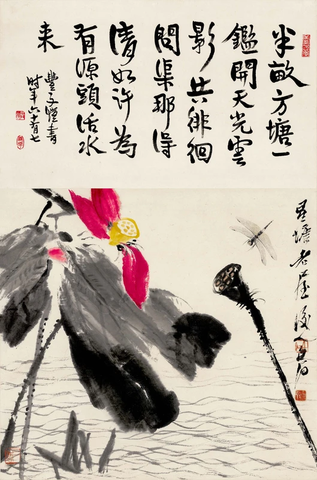 半畝方塘一
鑑開天光雲
影共徘徊
問渠那得
清如許為
有源頭活水
来
豐子愷書
時年六十有七
星塘老屋後人白石